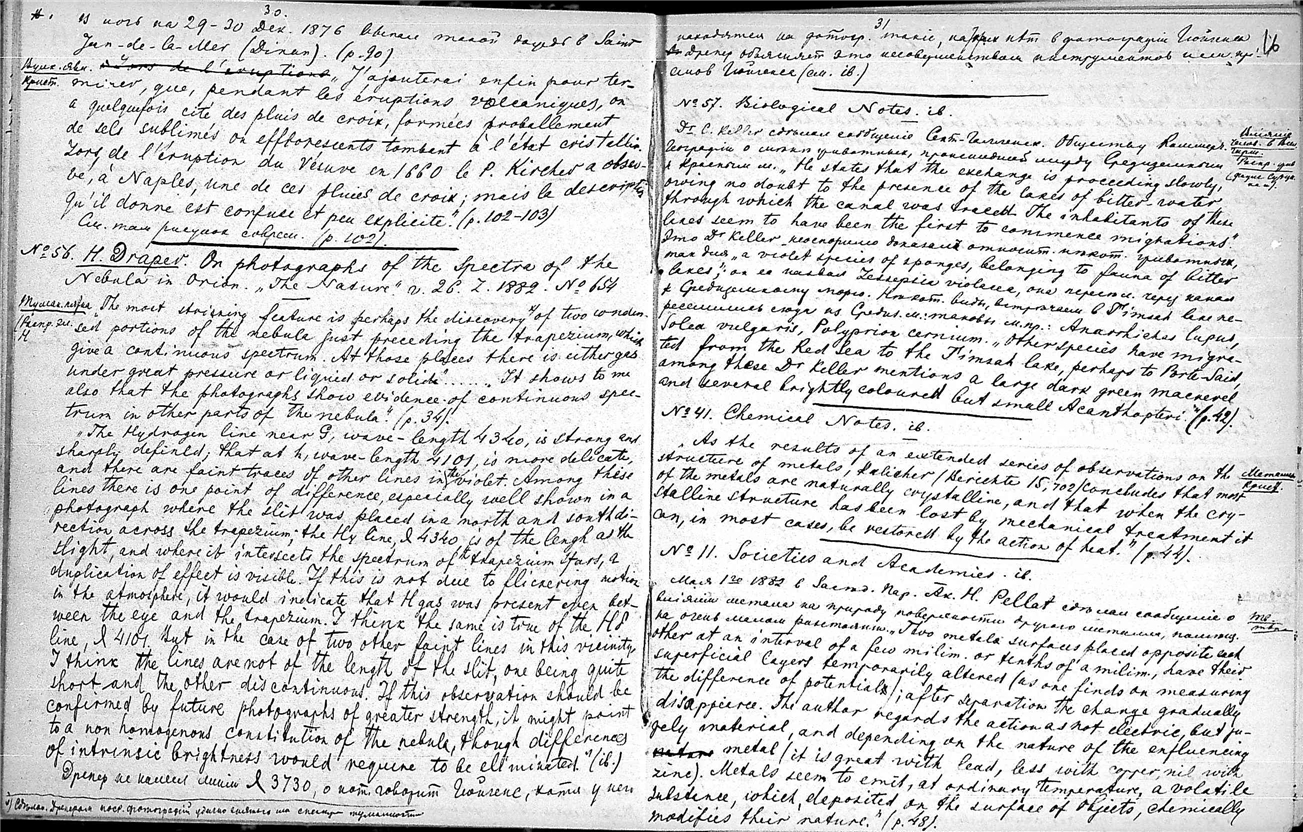 30.
въ ночь на 29-30 Dex. 1876 въ Saint
Jan-de-la-Mer (Dinan). (p. 90)
"J'ajouterai enfin pour ter-
miner, que, pendant les éruptions volcaniques, on
a quelquefois cité des pluis de croix, formées proballement
de sels sublimés ou efflorescents tombant à l'état cristallin.
Lors de l'éruption du Vésuve en 1660 le P. Kircher a obser-
vé, à Naples, une de ces pluies de croix; mais la description
qu'il donne est confuse et peu explicite." (p. 102-103)
См. там рисунок соврем. (p. 102).
№ 56. H. Draper. On photographs of the Spectra of the
Nebula in Orion. "The Nature" v. 26. I. 1882. № 654
"The most striking feature is perhaps the discovery of two conden-
sed portions of the nebula just preceding the trapezium, which
give a continuous spectrum. At those places there is either gas
under great pressure or liquid or solid...... It shows to me
also that the photographs show evidence of continuous spec-
trum in other parts of the nebula." (p. 34).
"The Hydrogen line near G, wave-length 4340, is strong and
sharply defined, that at h, wave-length 4101, is more delicate,
and there are faint traces of other lines in the violet. Among these
lines there is one point of difference, especially well shown in a
photograph where the slit was placed in a north and south di-
rection across the trapezium; the Hγ line, λ 4340, is of the lengh as the
slight, and where it intersects the spectrum of the trapezium stars, a
duplication of effect is visible. If this is not due to flickering motion
in the atmosphere, it would indicate that H gas was present even bet-
ween the eye and the trapezium. I think the same is true of the Hδ
line, λ 4101. But in the case of two other faint lines in this vicinity
I think the lines are not of the length of the slit, one being quite
short and the other discontinuous. If this observation should be
confirmed by future photographs of greater strength, it might point
to a non homogenous constitution of the nebula, though differences
of intrinsic brightness would require to be eliminated." (ib.)
Дрепер не нашел линии λ 3730, о кот. говорит Гюйгенс, хотя у него
31
16
№ 57. Biological Notes. ib.
Dr. C. Keller сделал сообщение
"He states that the exchange is proceeding slowly,
owing no doubt to the presence of the lakes of bitter-water
through which the canal was traced. The inhabitants of these
lakes seem to have been the first to commence migrations."
"a violet species of sponges, belonging to fauna of bitter
lakes";
Anarrhichas lupus,
Solea vulgaris, Polyprion cernium. "Other species have migra-
ted from the Red Sea to the Timsah lake, perhaps to Port-Said,
among these Dr Keller mentions a large dark green mackerel
and several brightly coloured but small Acanthopteri." (p. 42).
№ 41. Chemical Notes. ib.
"As the results of an extended series of observations on the
structure of metals, Kalisher (Berichte 15, 702) concludes that most
of the metals are naturally crystalline, and that when the cry-
stalline structure has been lost by mechanical treatment it
can, in most cases, be restored by the action of heat." (p. 44).
№ 11. Societies and Academies. ib.
Мая 1го 1882 в Засед. Пар. Ак. H. Pellat сделал сообщение о
влиянии метала на природу поверхности другого металла, помещ.
на очень малом расстоянии. "Two metals surfaces placed opposite each
other at an interval of a few milim. or tenths of a milim, have their
superficial layers temporarily altered (as one finds on measuring
the difference of potentials); after separation the change gradually
disappearce. The author regards the action as not electric, but pu-
rely material, and depending on the nature of the enfluencing
metal (it is great with lead, less with copper, nil with
zinc). Metals seem to emit, at ordinary temperature, a volatile
substance, which, deposited on the surface of objects, chemically
modifies their nature." (p. 48).